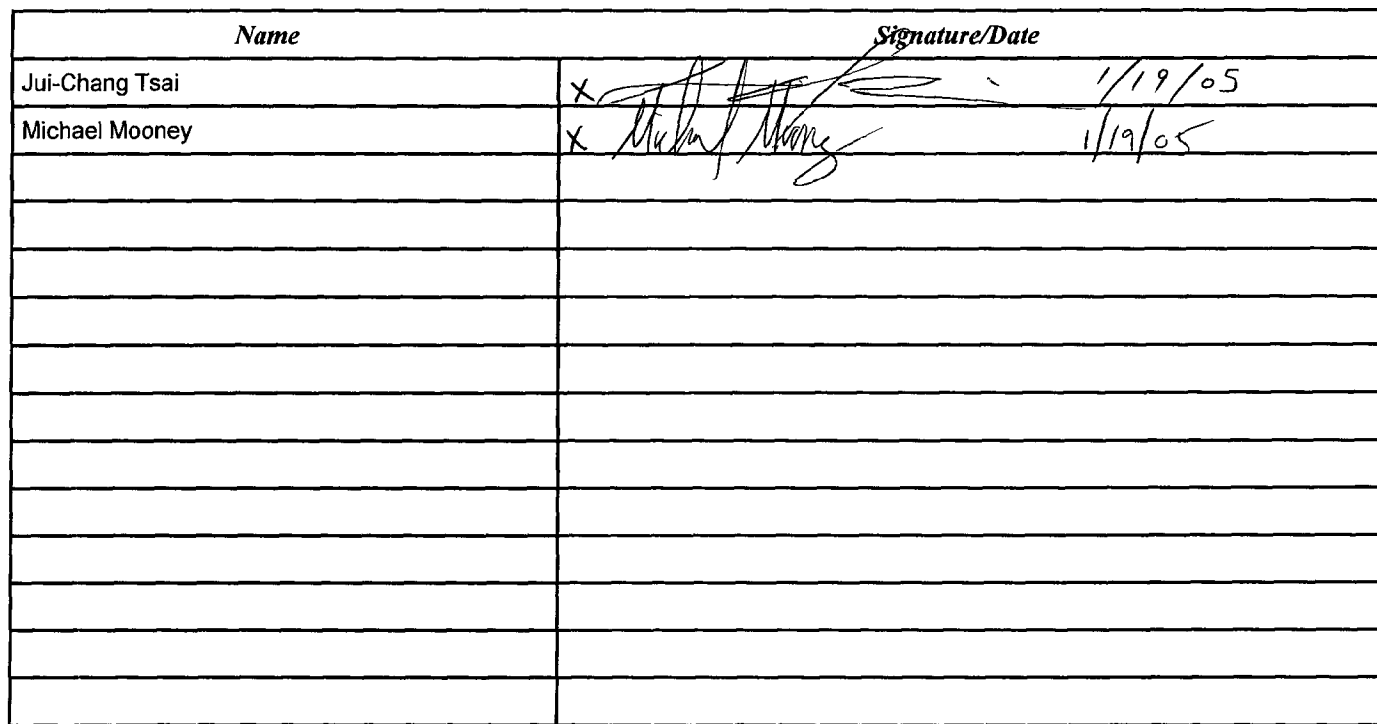 Name Signature/Date
Jui-Chang Tsai X 1/19/05
Michael Mooney X Michael Mooney 1/19/05